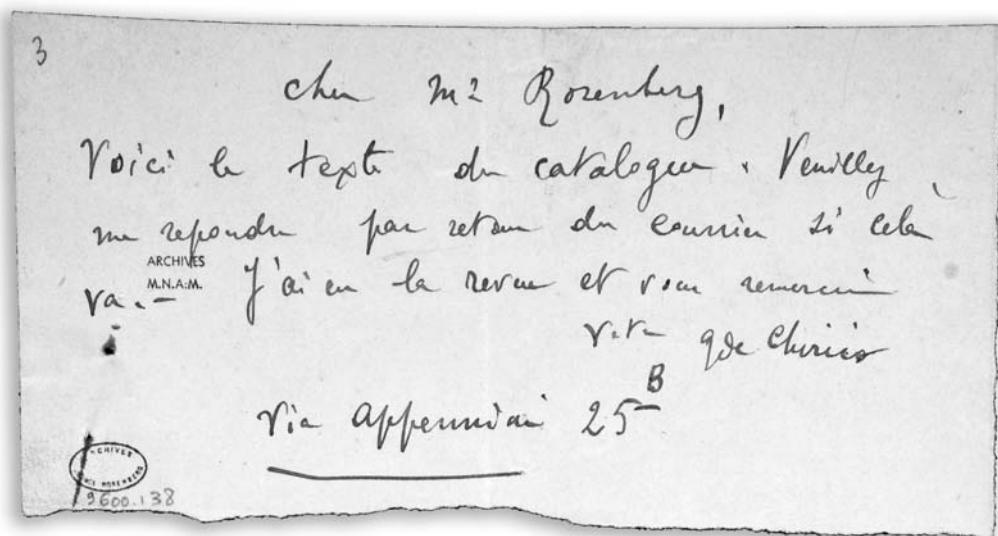 3
cher Mr Rosenberg,
Voici le texte du catalogue. Veuillez
me repondre par retour du courrier si cela
va.– J'ai eu la revue et vous remercie
ARCHIVES
M.N.A.M.
Votre g de Chirico
Via Appennini 25 B
ARCHIVES
LÉONCE ROSENBERG
9600.138